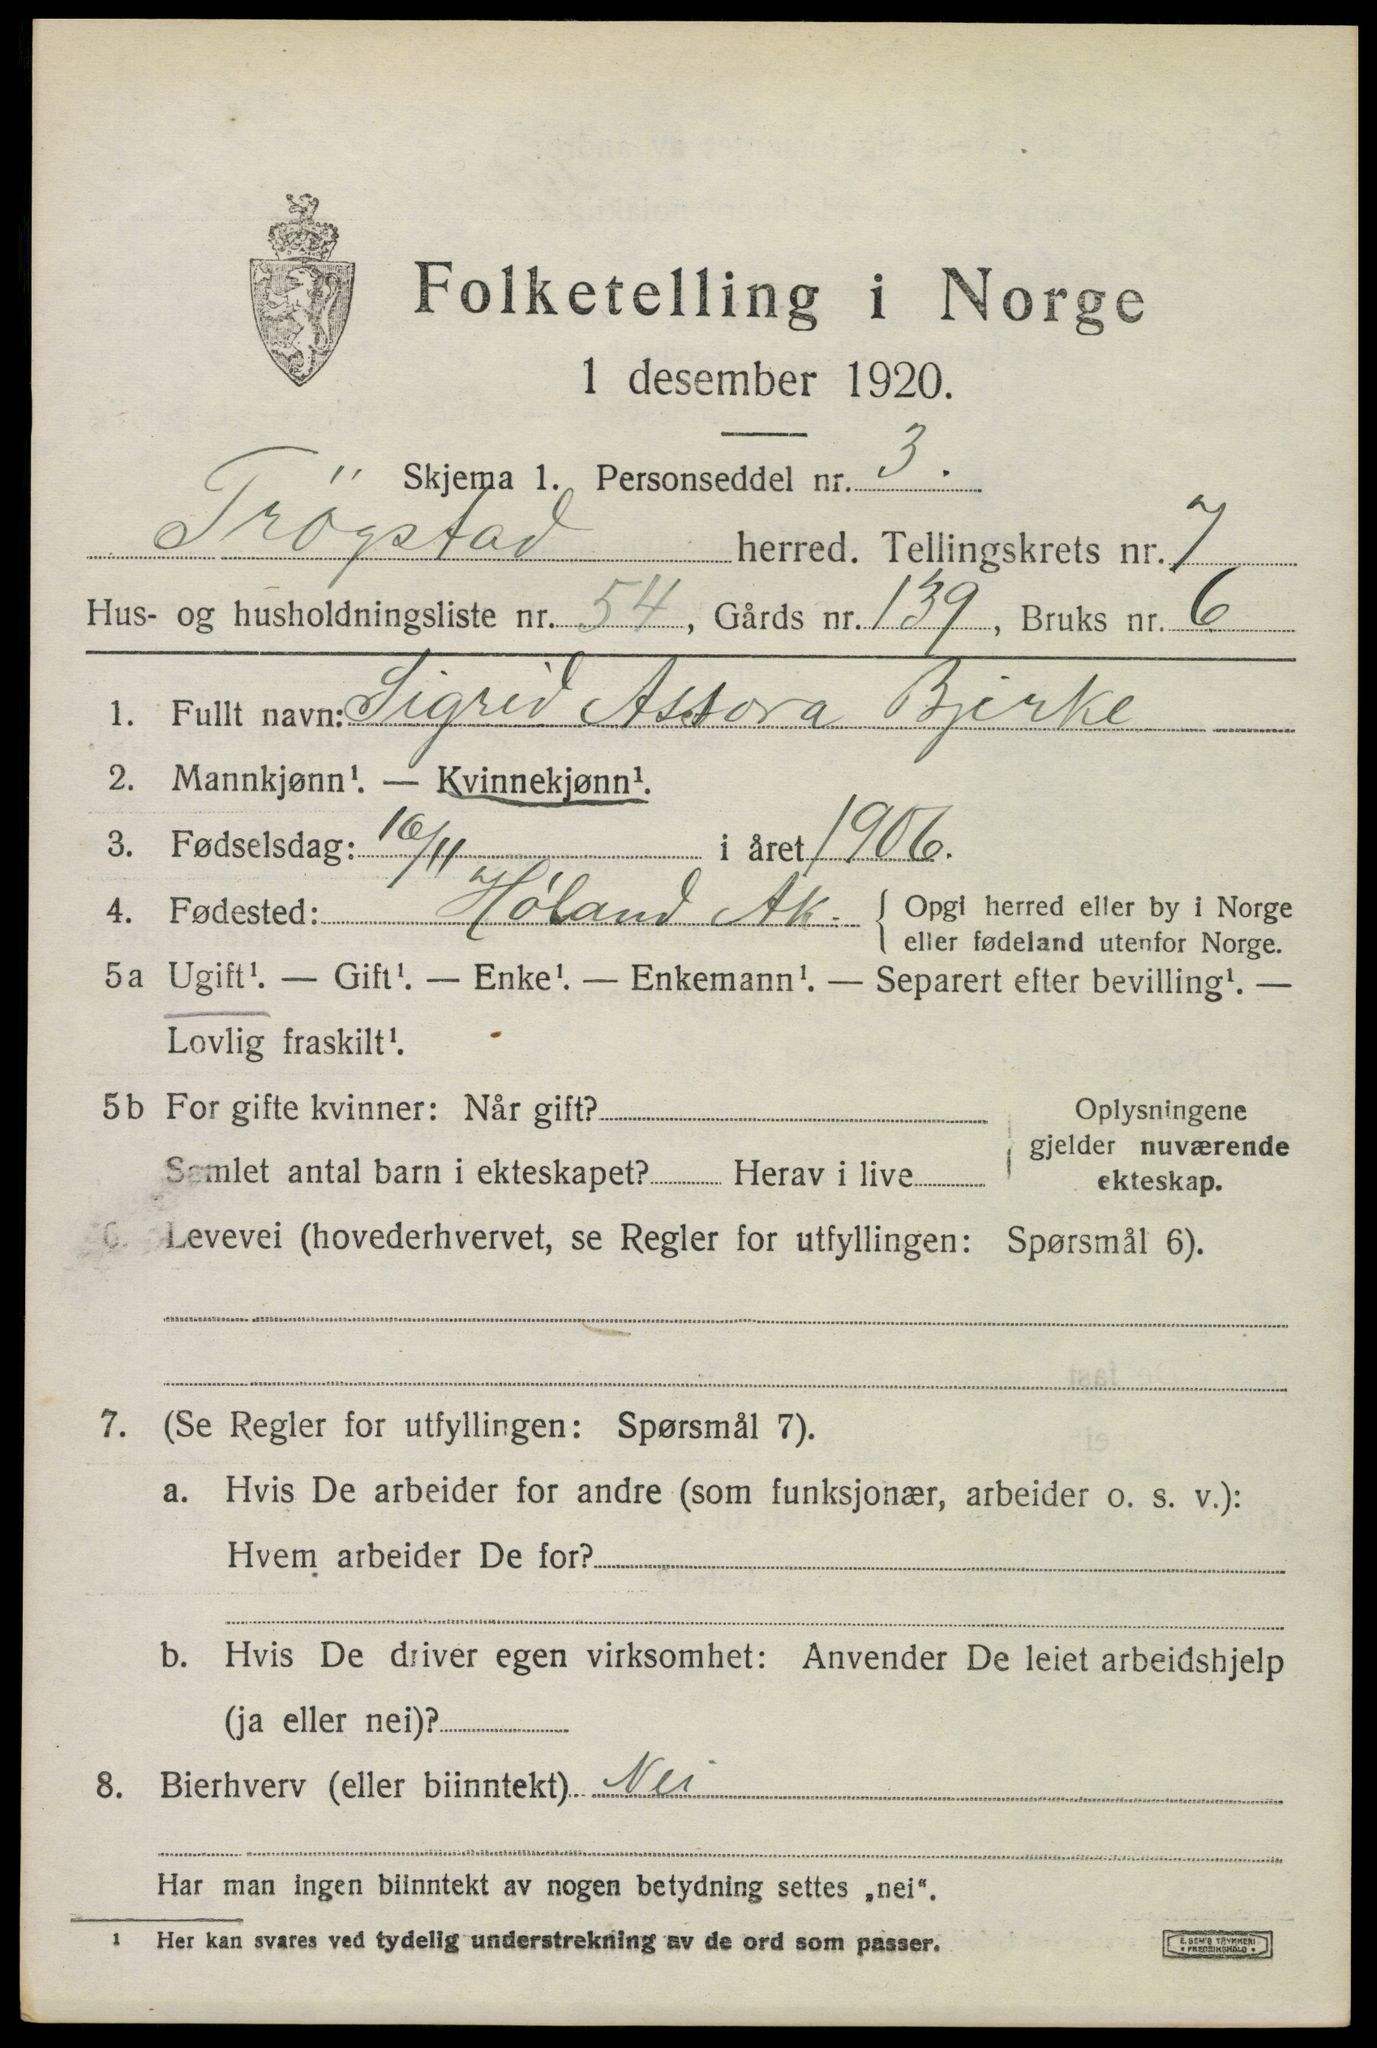 Folketelling i Norge
1 desember 1920.
Skjema 1. Personseddel nr. 3.
Trögstad herred. Tellingskrets nr. 7
Hus- og husholdningsliste nr. 54, Gårds nr. 139, Bruks nr. 6
1. Fullt navn: Sigrid Assora Bjerke
2. Mannkjønn¹. — Kvinnekjønn¹.
3. Fødselsdag: 16/11 i året 1906.
4. Fødested: Høland Ak. { Opgi herred eller by i Norge
eller fødeland utenfor Norge.
5a Ugift¹. — Gift¹. — Enke¹. — Enkemann¹. — Separert efter bevilling¹. —
Lovlig fraskilt¹.
5b For gifte kvinner: Når gift?
Samlet antal barn i ekteskapet? Herav i live
Oplysningene
gjelder nuværende
ekteskap.
6. Levevei (hovederhvervet, se Regler for utfyllingen: Spørsmål 6).
7. (Se Regler for utfyllingen: Spørsmål 7).
a. Hvis De arbeider for andre (som funksjonær, arbeider o. s. v.):
Hvem arbeider De for?
b. Hvis De driver egen virksomhet: Anvender De leiet arbeidshjelp
(ja eller nei)?
8. Bierhverv (eller biinntekt) Nei
Har man ingen biinntekt av nogen betydning settes „nei“.
¹ Her kan svares ved tydelig understrekning av de ord som passer.
E. SEM'S TRYKKERI
• FREDRIKSHALD •